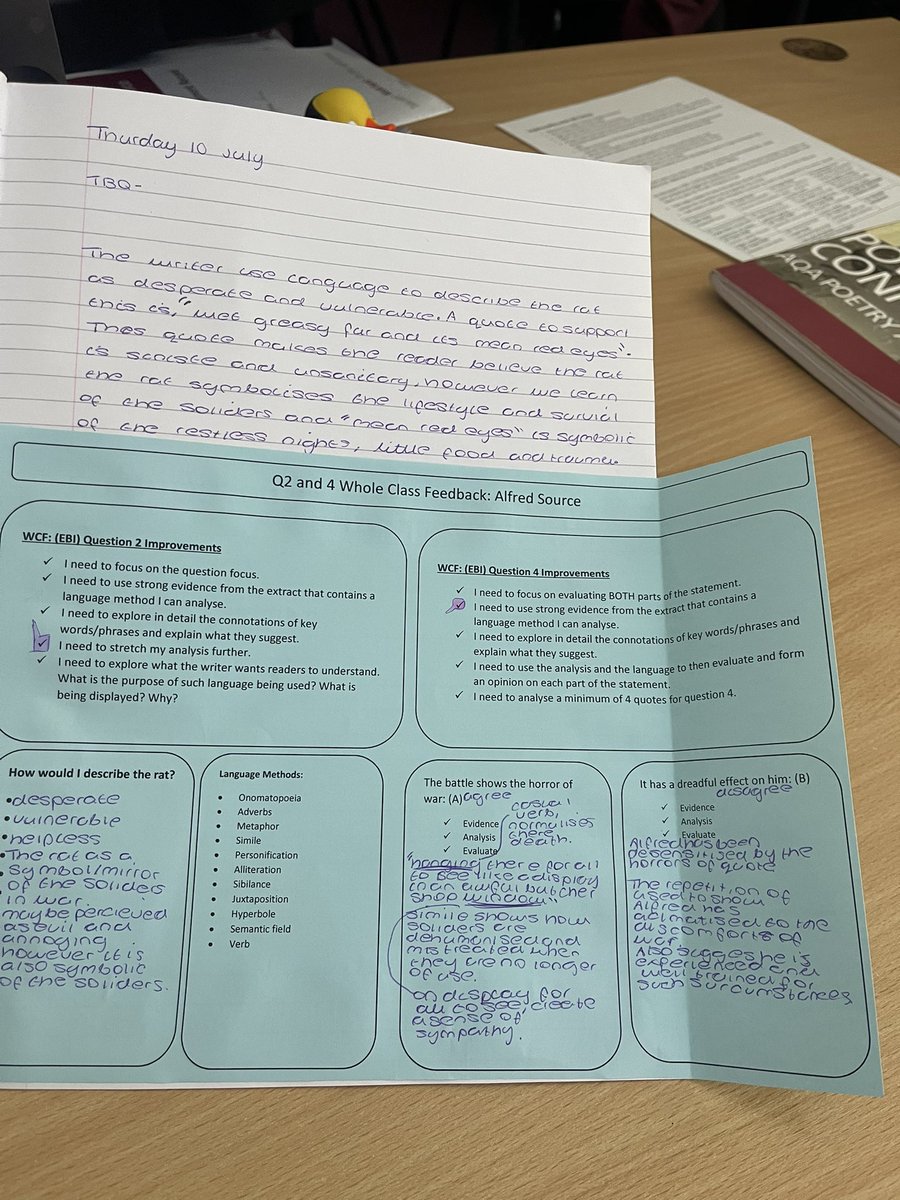 Thurday 10 July
TBQ-
The writer use language to describe the rat
as desperate and vulnerable. A quote to support
this is, "wet greasy fur and its mean red eyes".
This quote makes the reader believe the rat
is and unsanitory, however we learn
the rat symbolises the lifestyle and survial
of the soliders and "mean red eyes" is symbolic
of the restless nights, little food and trauma.
PO
CONF
AQA POETRY A
Q2 and 4 Whole Class Feedback: Alfred Source
WCF: (EBI) Question 2 Improvements
✓ I need to focus on the question focus.
✓ I need to use strong evidence from the extract that contains a
language method I can analyse.
✓ I need to explore in detail the connotations of key
words/phrases and explain what they suggest.
✓ I need to stretch my analysis further.
✓ I need to explore what the writer wants readers to understand.
What is the purpose of such language being used? What is
being displayed? Why?
WCF: (EBI) Question 4 Improvements
✓ I need to focus on evaluating BOTH parts of the statement.
✓ I need to use strong evidence from the extract that contains a
language method I can analyse.
✓ I need to explore in detail the connotations of key words/phrases and
explain what they suggest.
✓ I need to use the analysis and the language to then evaluate and form
an opinion on each part of the statement.
✓ I need to analyse a minimum of 4 quotes for question 4.
How would I describe the rat?
•desperate
•vulnerable
•helpless
•The rat as a
•symbol/mirror
of the soliders
in war.
may be percieved
as evil and
annoying
however it is
also symbolic
of the soliders.
Language Methods:
• Onomatopoeia
• Adverbs
• Metaphor
• Simile
• Personification
• Alliteration
• Sibilance
• Juxtaposition
• Hyperbole
• Semantic field
• Verb
The battle shows the horror of
war: (A) agree
✓ Evidence
✓ Analysis
✓ Evaluate
casual
verb,
normalises
there
death.
"hanging there for all
to see like a display
in an awful butcher
shop window"
simile shows how
soliders are
dehumanised and
mistreated when
they are no longer
of use.
on display for
all to see, create
a sense of
sympathy.
It has a dreadful effect on him: (B)
disagree
✓ Evidence
✓ Analysis
✓ Evaluate
Alfred has been
desensitised by the
horrors of quote
The repetition of
used to show
Alfred has
aclmatised to the
discomforts of
war.
Also suggests he is
experienced and
well trained for
such surcumstances